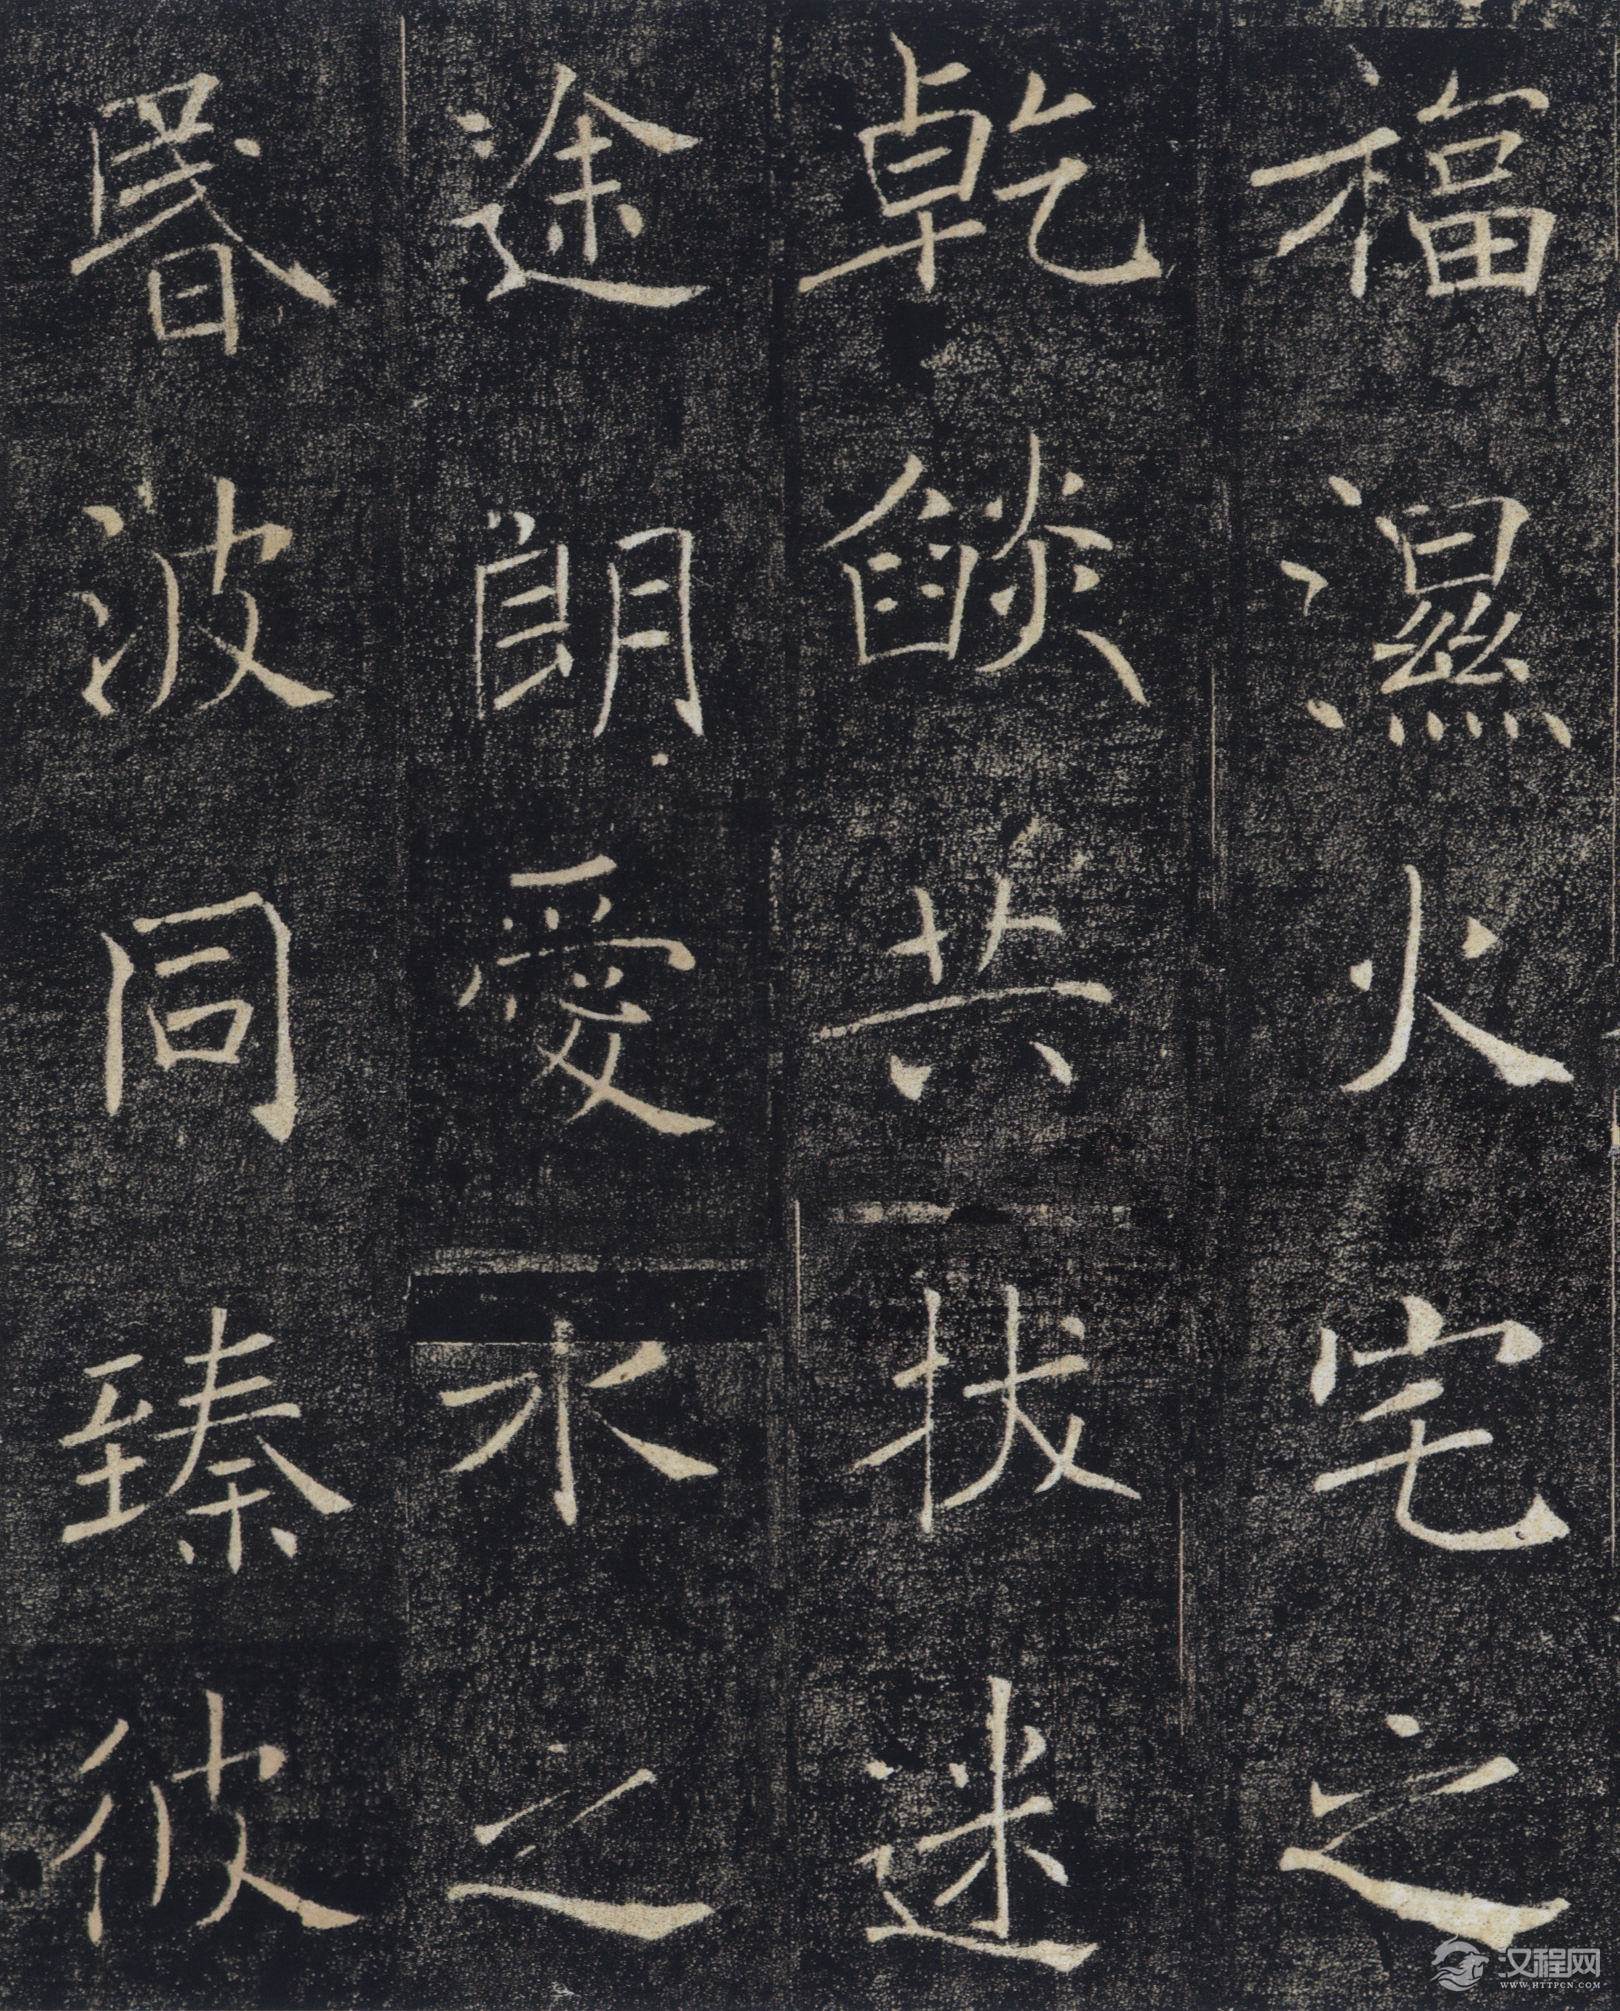 福濕火宅之
乾燄共拔迷
途朗愛水之
昬波同臻彼
汉程网
WWW.HTTPCN.COM